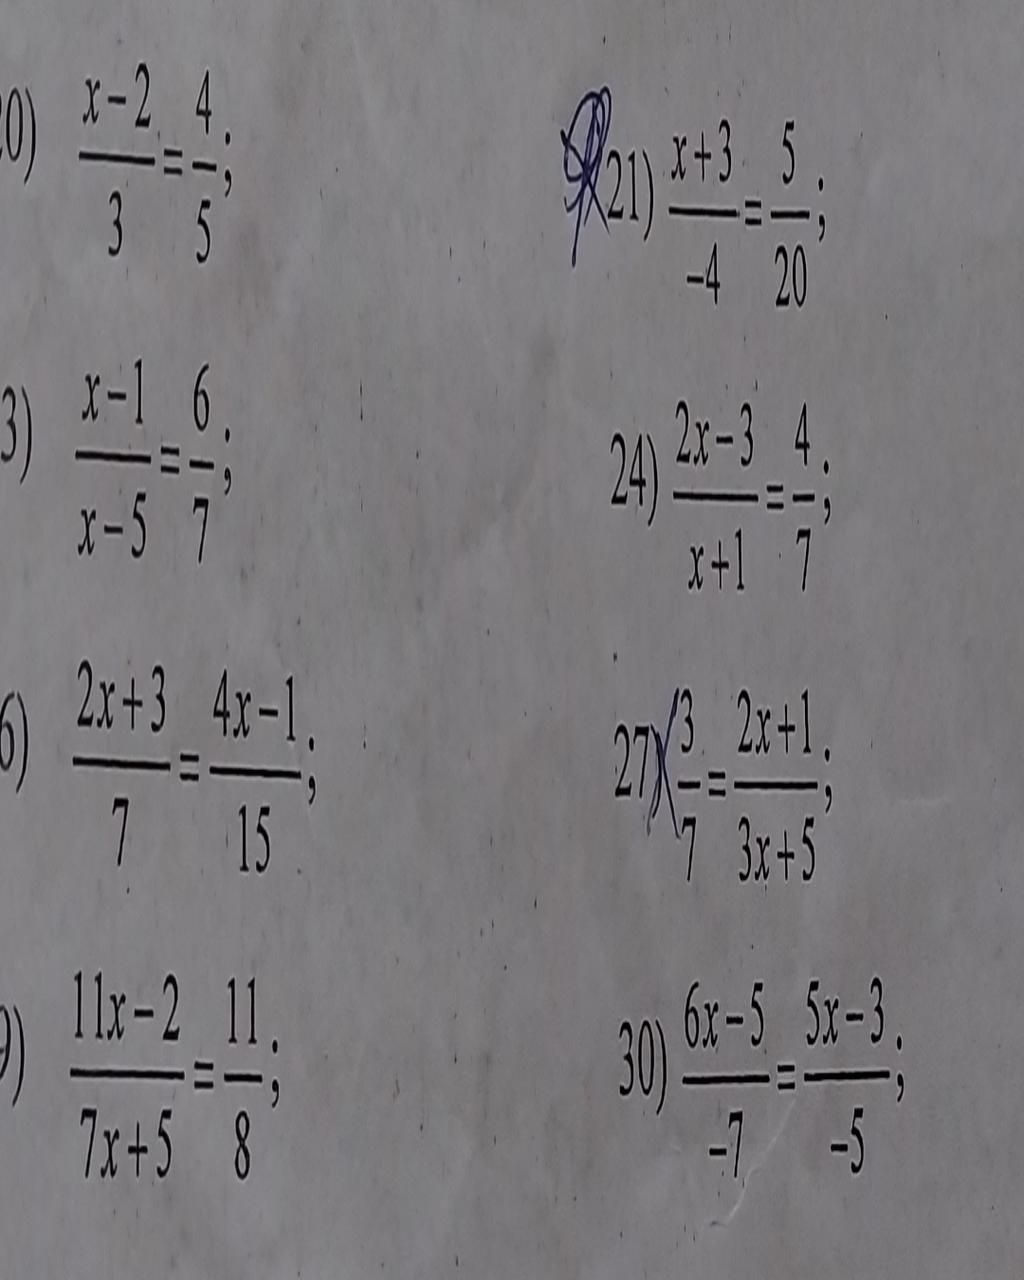 0) (x-2)/3 = 4/5;
21) (x+3)/-4 = 5/20;
3) (x-1)/(x-5) = 6/7;
24) (2x-3)/(x+1) = 4/7;
6) (2x+3)/7 = (4x-1)/15;
27) 3/7 = (2x+1)/(3x+5);
9) (11x-2)/(7x+5) = 11/8;
30) (6x-5)/-7 = (5x-3)/-5;